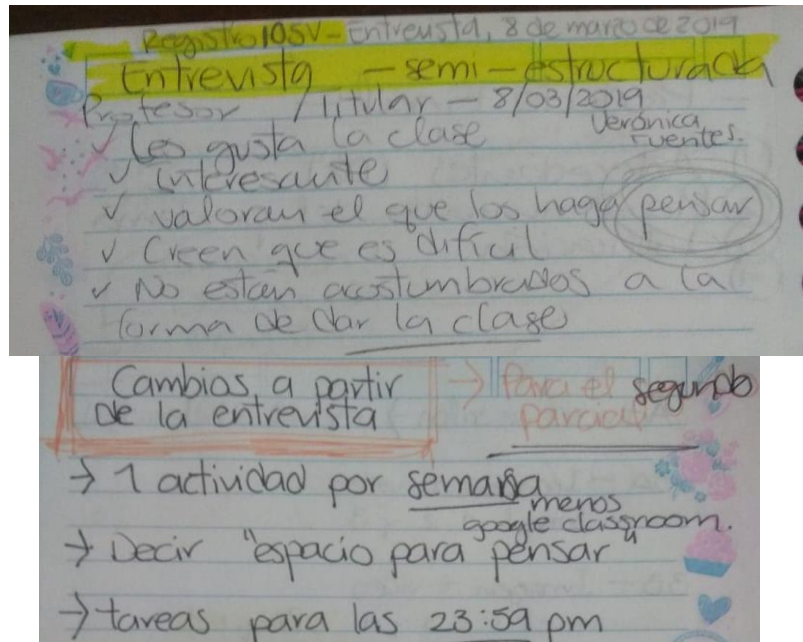 Registro 10SV - Entrevista, 8 de marzo de 2019
Entrevista - semi-estructurada
Profesor / Titular - 8/03/2019
Verónica Fuentes.
✓ Les gusta la clase
✓ Interesante
✓ valoran el que los haga pensar
✓ Creen que es difícil
✓ No están acostumbrados a la
forma de dar la clase
Cambios a partir
de la entrevista
→ Para el segundo
parcial
→ 1 actividad por semana
menos
google classroom.
→ Decir "espacio para pensar"
→ tareas para las 23:59 pm